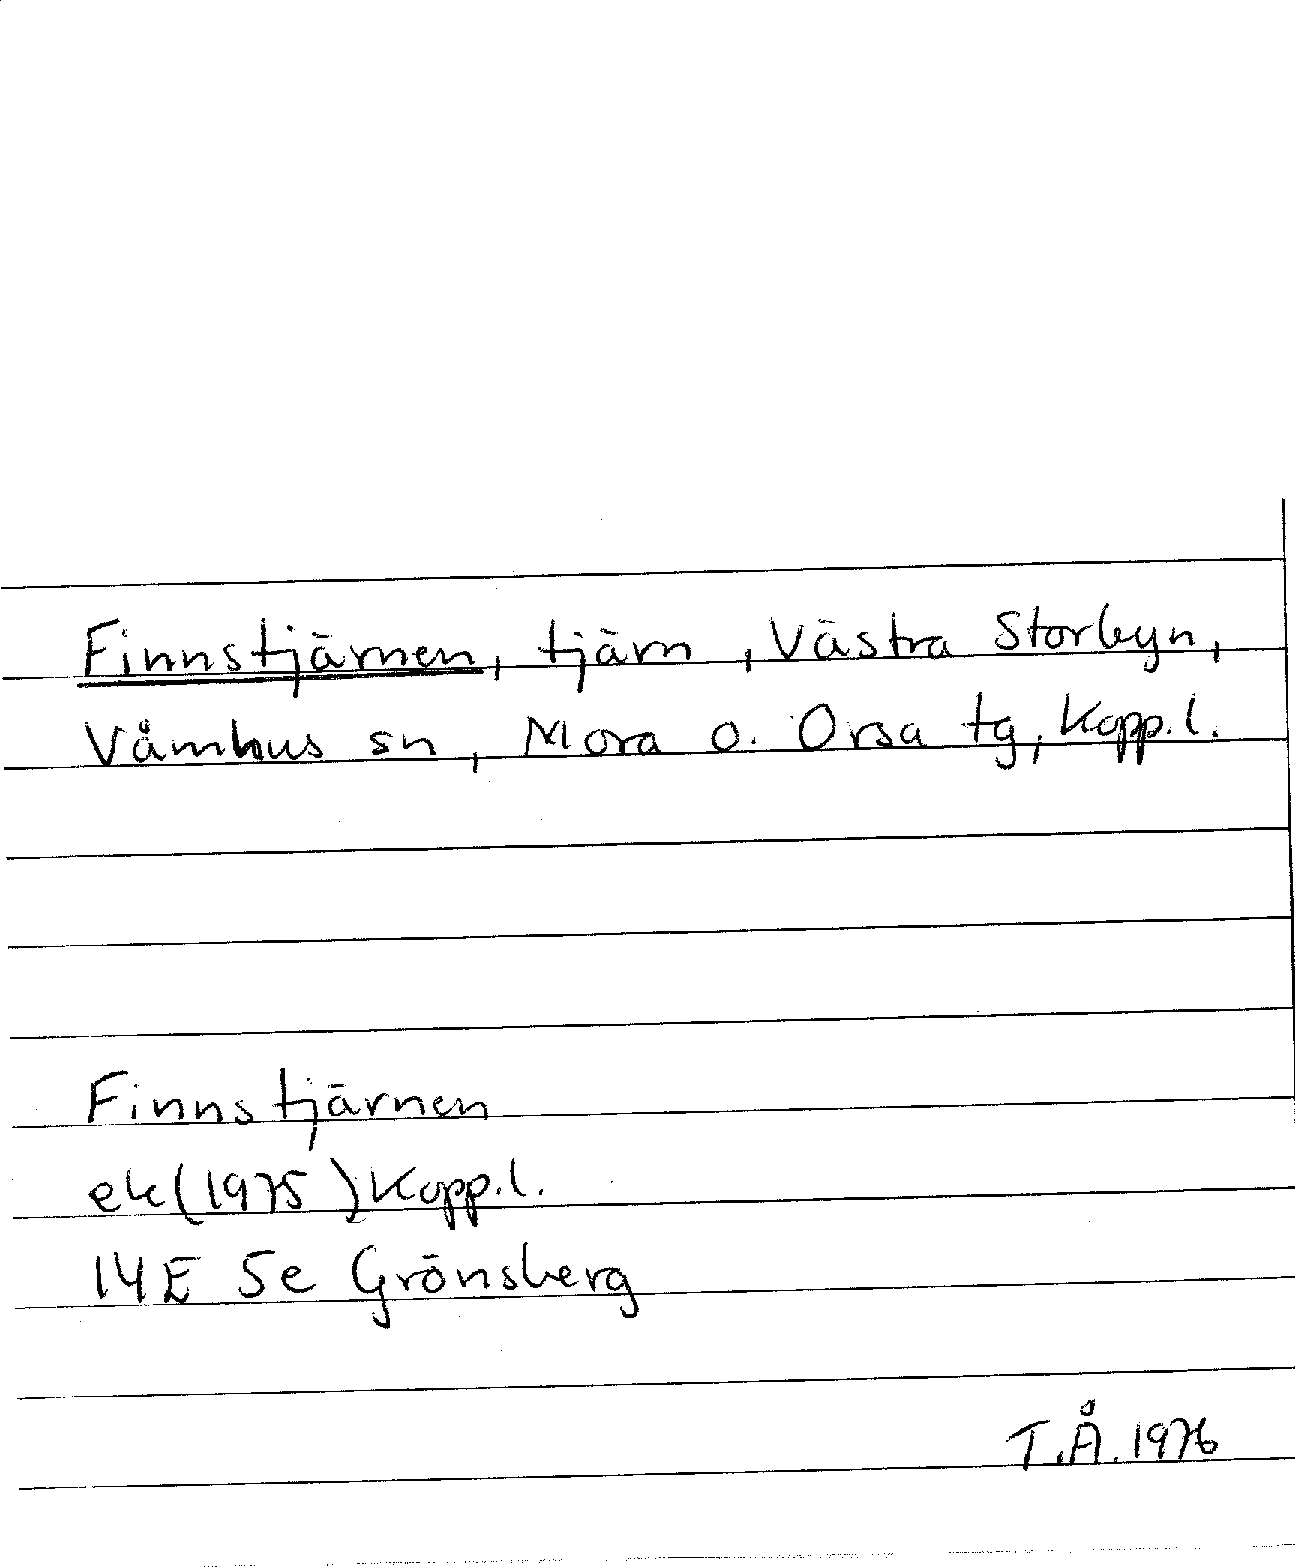 Finnstjärnen, tjärn, Västra Storbyn,
Våmhus sn, Mora o. Orsa tg, Kopp.l.
Finnstjärnen
ek (1975) Kopp.l.
14E 5e Grönsberg
T.Å. 1976